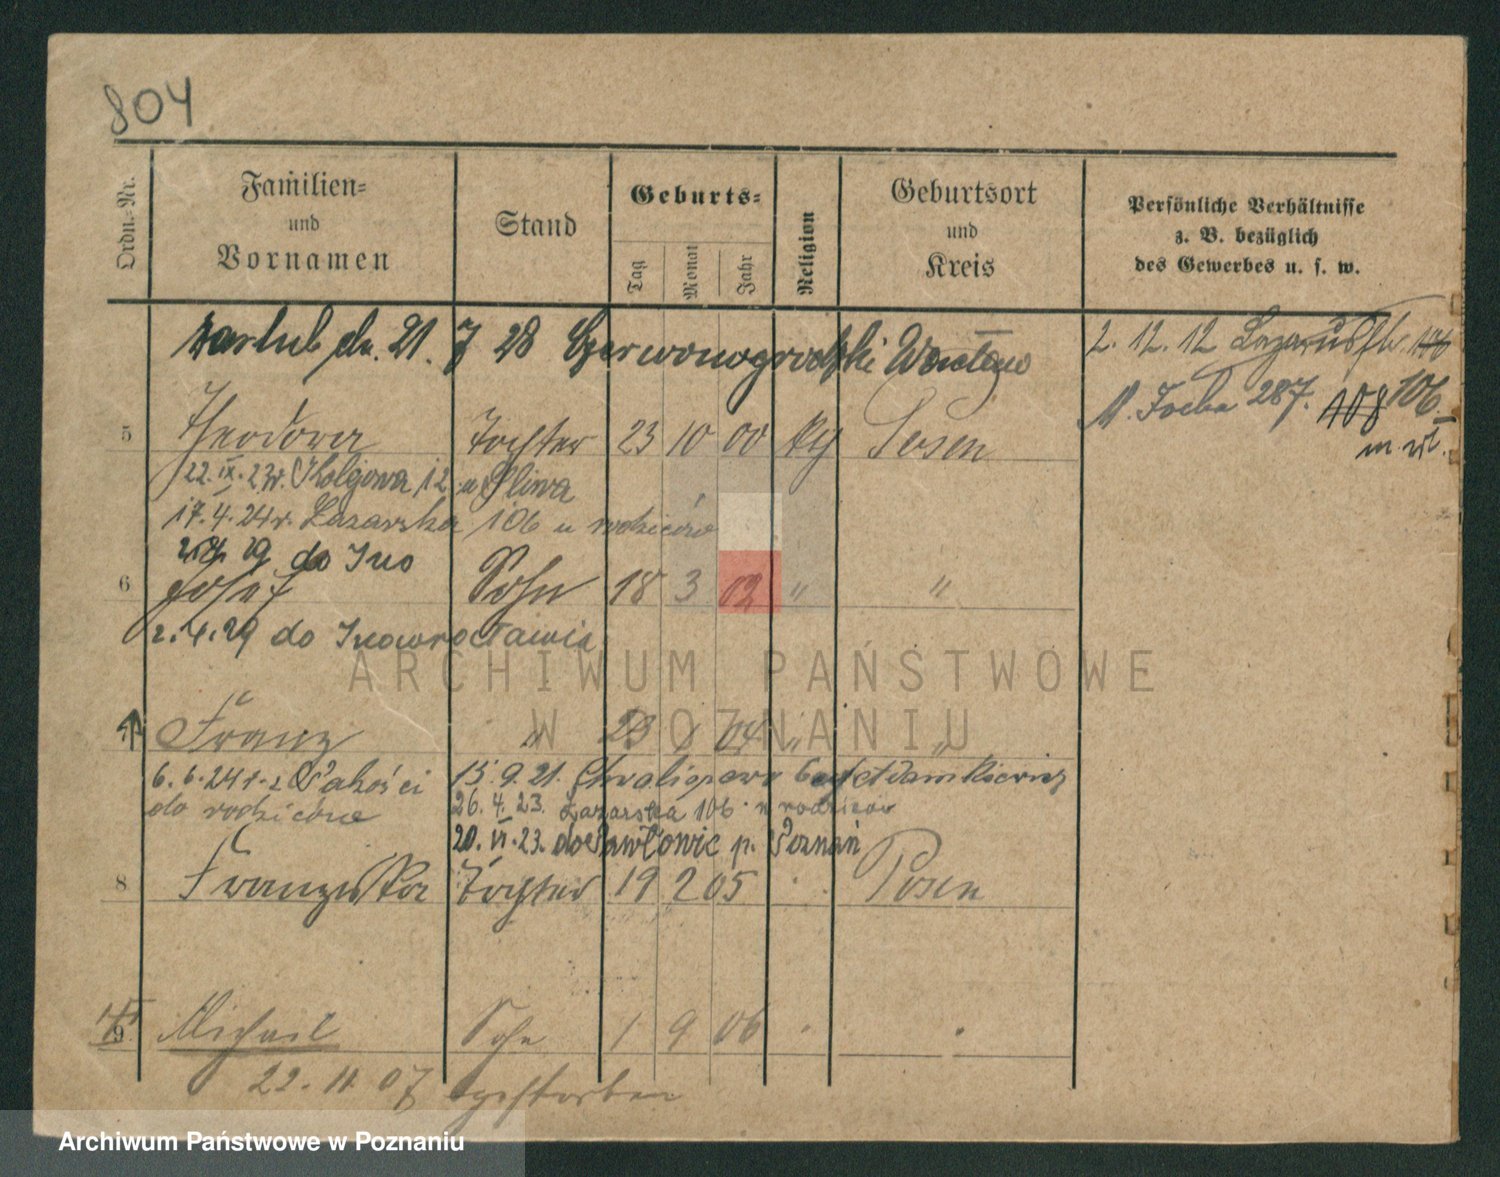 804
Ordn.-Nr.
Familien-
und
Vornamen
Stand
Geburts-
Tag
Monat
Jahr
Religion
Geburtsort
und
Kreis
Persönliche Verhältnisse
z. B. bezüglich
des Gewerbes u. s. w.
21. 7 28 Czerwonogrodzki Wacław
2. 12. 12 Lazarusstr.
287. 108 106
5 Theodora Tochter 23 10 00 Posen
22. IX. 23r. 12 u Śliwa
17. 4. 24r. Łazarska 106 u rodziców
29 do Ino
6 Josef Sohn 18 3 02 " "
2. 4. 29 do Inowrocławia
Franz " 04 " "
6. 6. 24 r. z Pakości
do rodziców
15. 9. 21. Chwaliszewo
26. 4. 23. Łazarska 106 u rodziców
20. VI. 23. do Pawłowic p. Poznań
8 Franziska Tochter 19 2 05 Posen
9 Michael Sohn 1 9 06
22. 11. 07 gestorben
ARCHIWUM PAŃSTWOWE
W POZNANIU
Archiwum Państwowe w Poznaniu